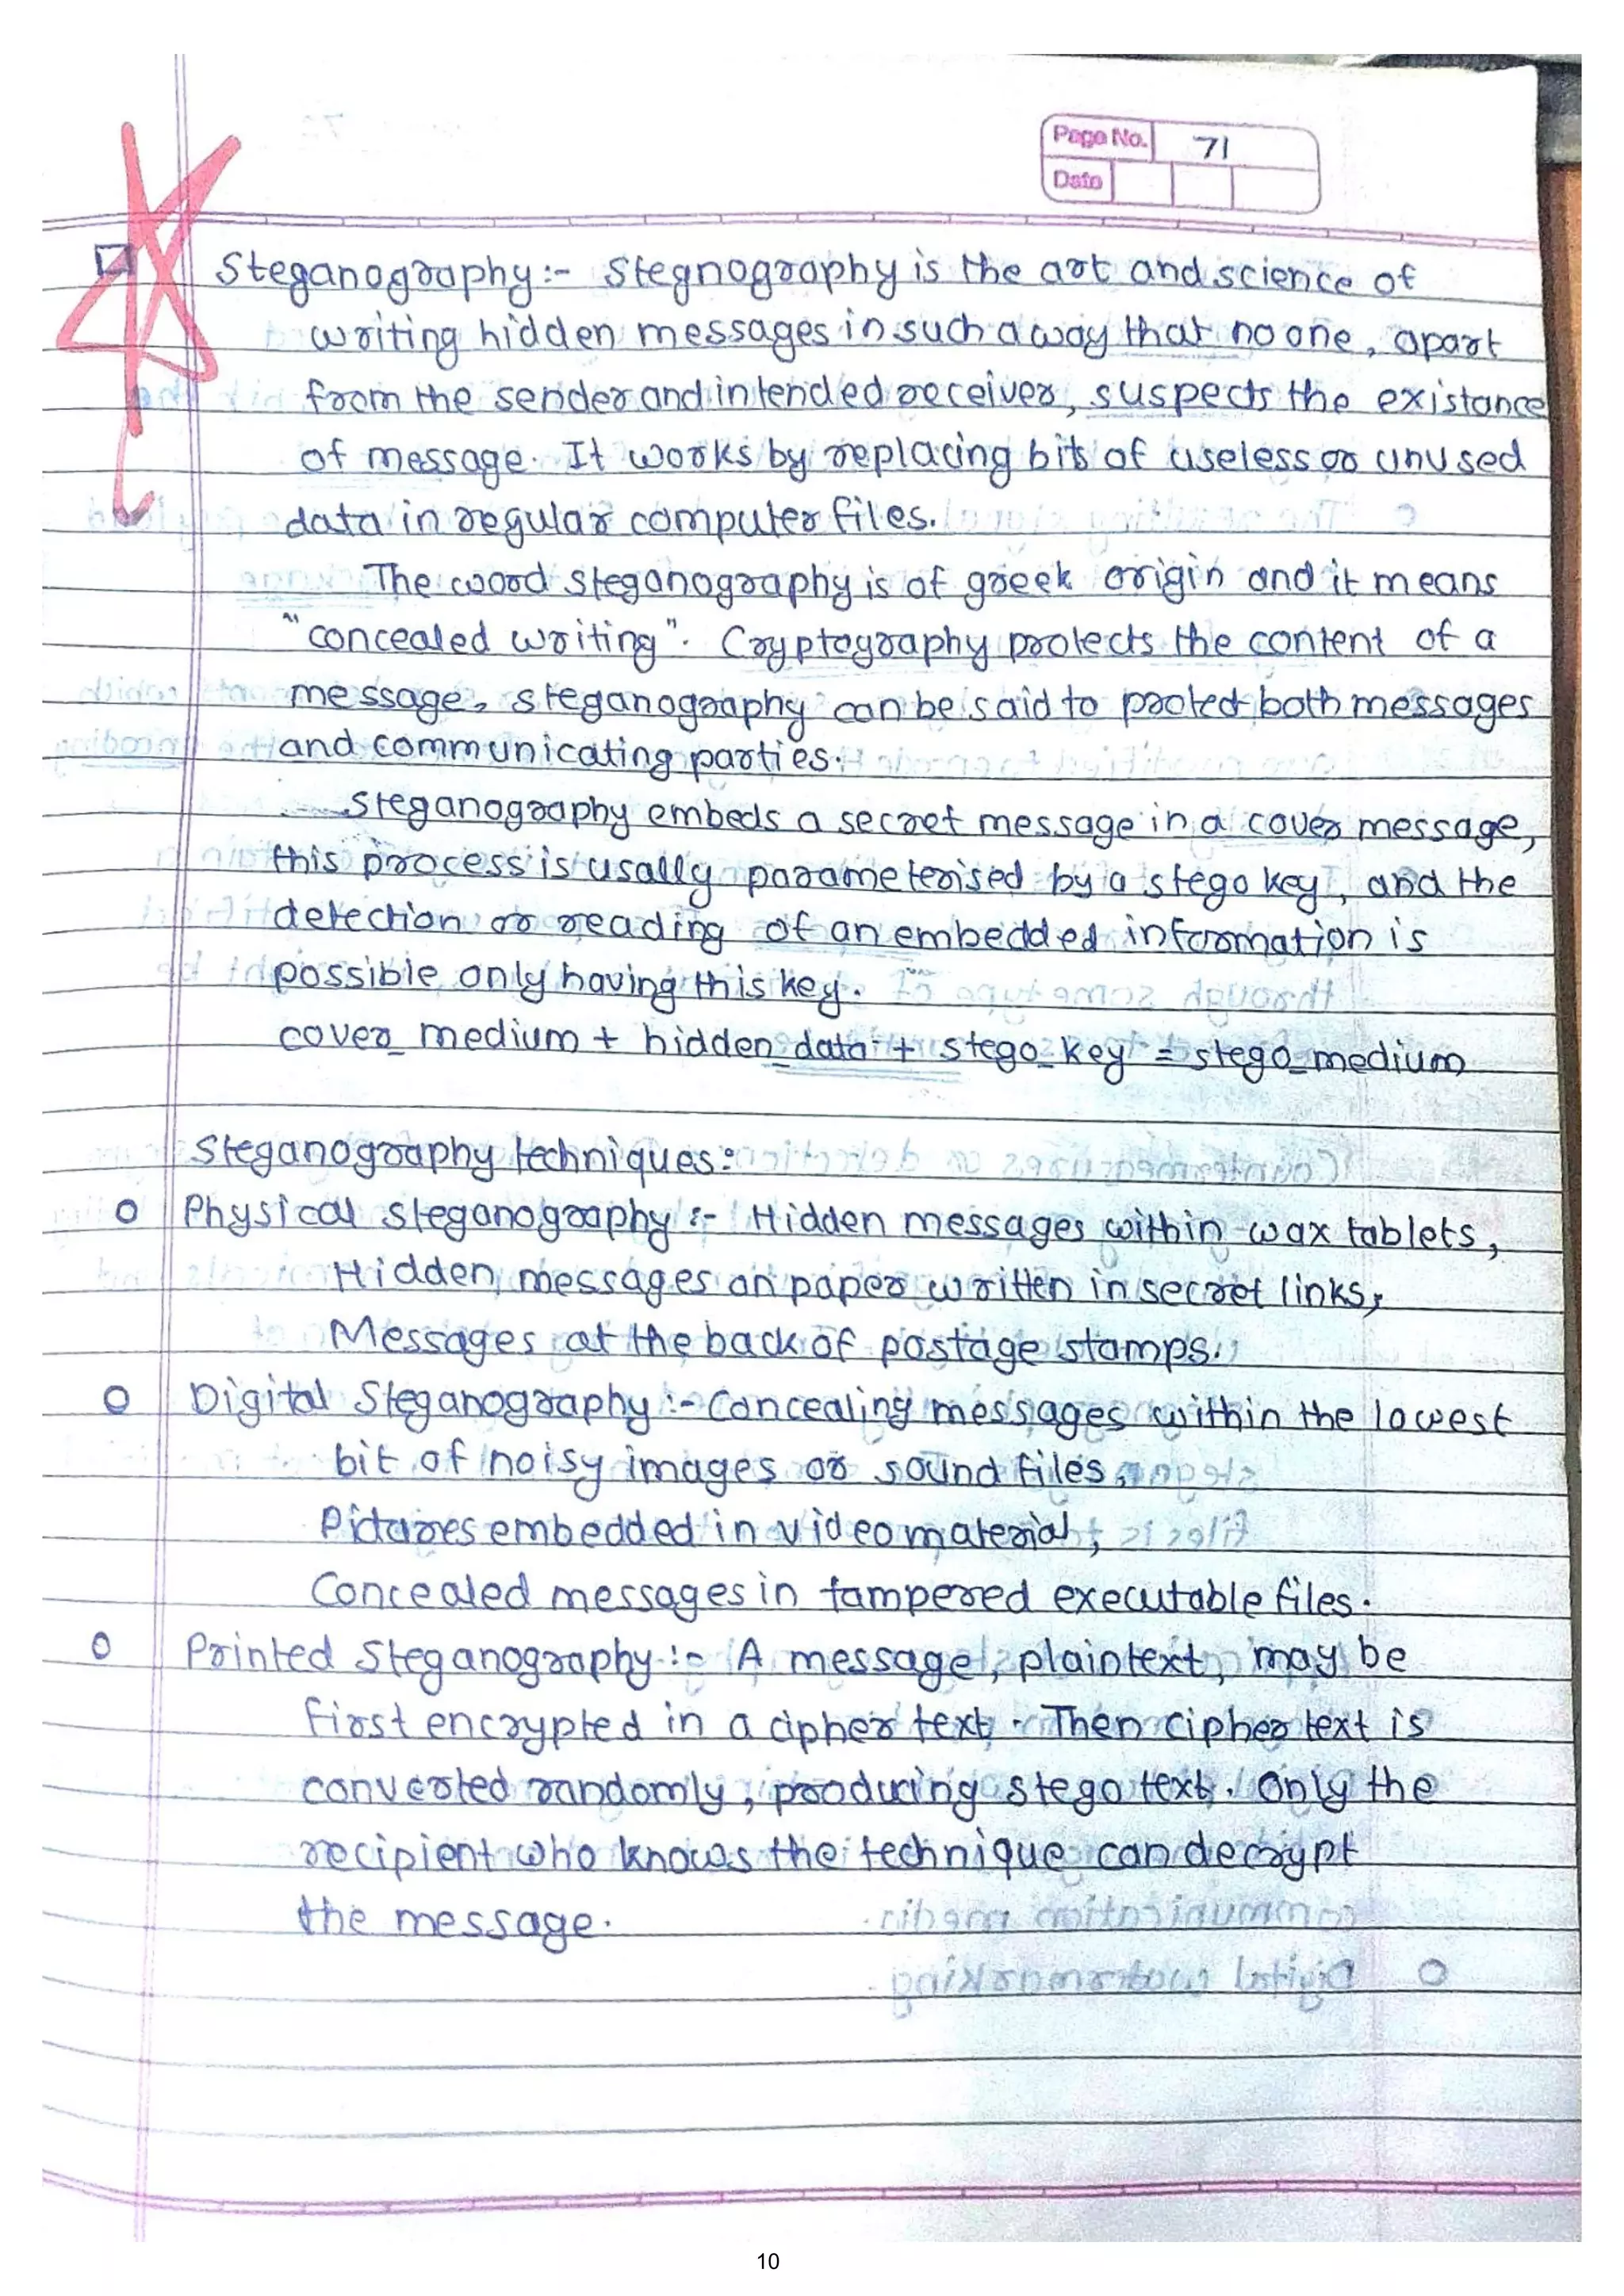 Page No. 71
Date
Steganography:- Stegnography is the art and science of
writing hidden messages in such a way that no one, apart
from the sender and intended receiver, suspects the existance
of message. It works by replacing bits of useless or unused
data in regular computer files.
The word steganography is of greek origin and it means
"concealed writing". Cryptography protects the content of a
message, steganography can be said to protect both messages
and communicating parties.
Steganography embeds a secret message in a cover message,
this process is usally parameterised by a stego key, and the
detection or reading of an embedded information is
possible only having this key.
cover_medium + hidden_data + stego_key = stego_medium
Steganography techniques:
o Physical steganography :- Hidden messages within wax tablets,
Hidden messages on paper written in secret links,
Messages at the back of postage stamps.
o Digital Steganography :- Concealing messages within the lowest
bit of noisy images or sound files,
Pictures embedded in video material,
Concealed messages in tampered executable files.
o Printed Steganography :- A message, plaintext, may be
first encrypted in a cipher text. Then cipher text is
converted randomly, producing stego text. Only the
recipient who knows the technique can decrypt
the message.
10